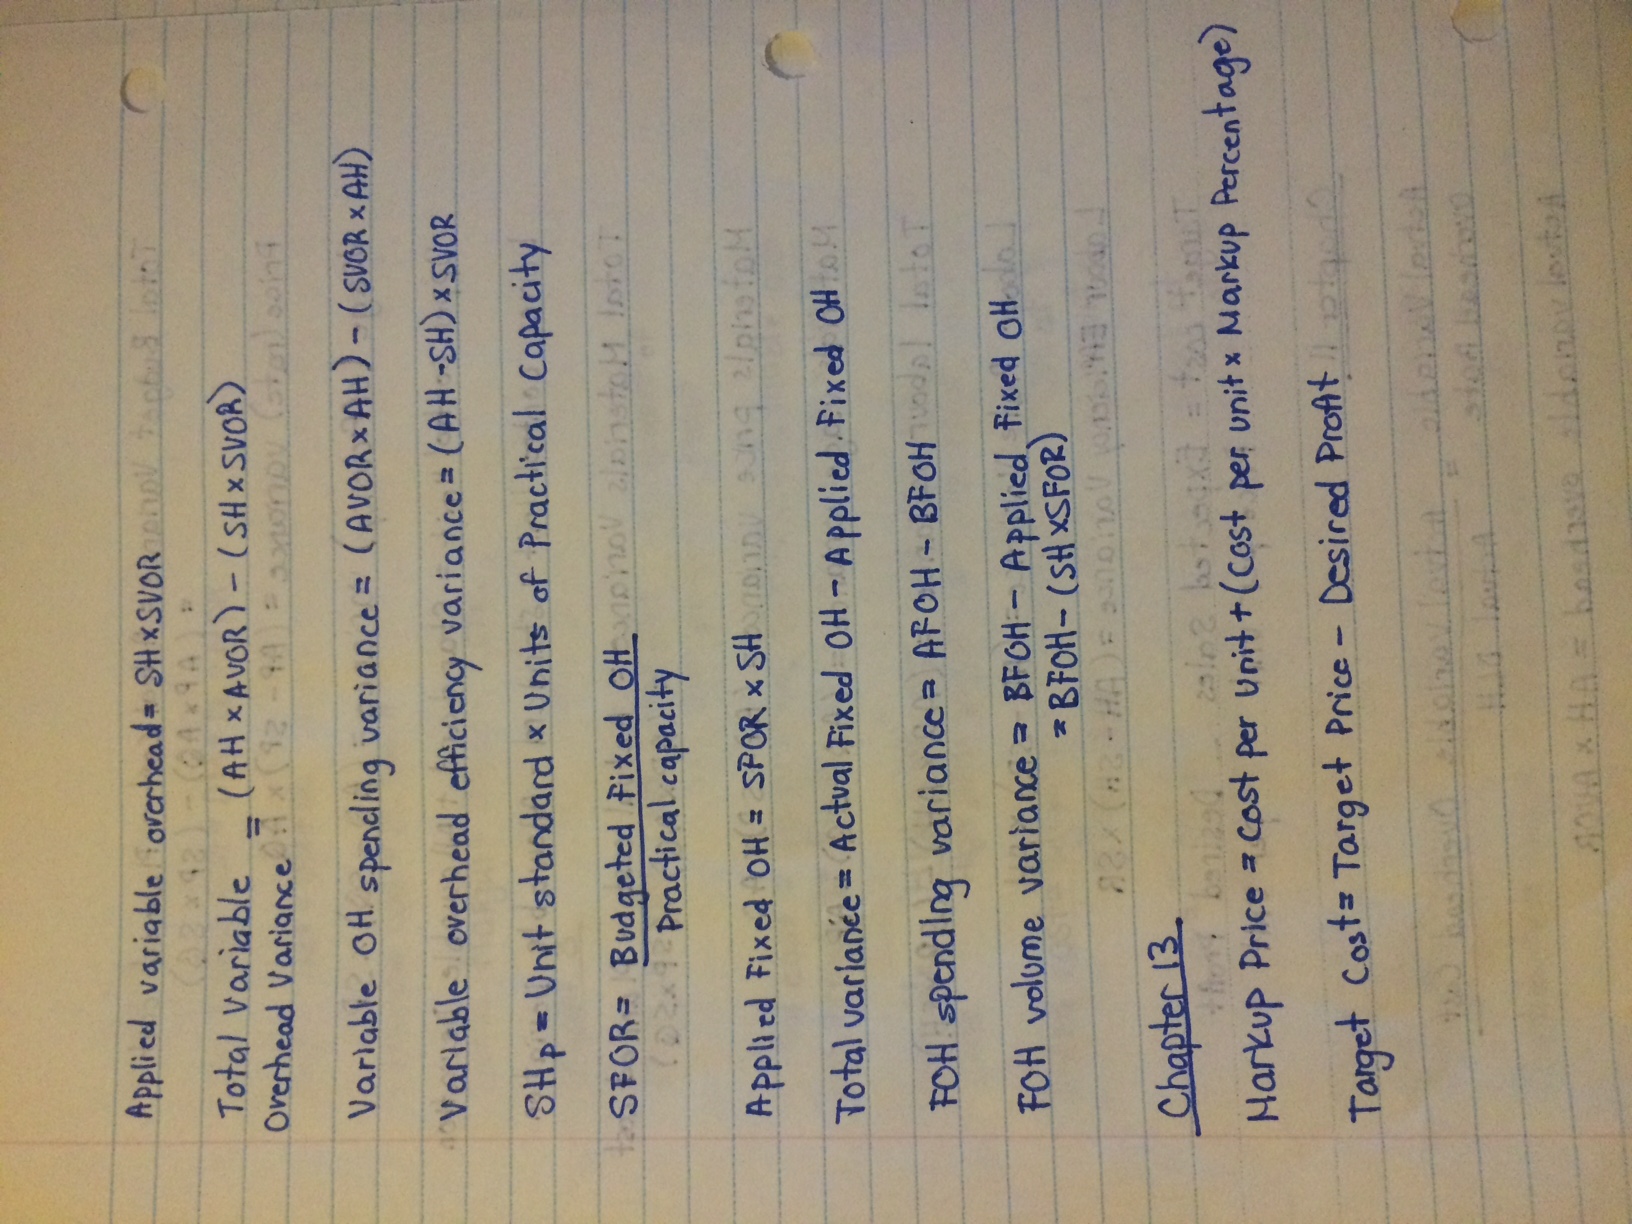 Applied variable overhead = SH x SVOR
Total Variable Overhead Variance = (AH x AVOR) - (SH x SVOR)
Variable OH spending variance = (AVOR x AH) - (SVOR x AH)
Variable overhead efficiency variance = (AH - SH) x SVOR
SHp = Unit standard x Units of Practical Capacity
SFOR = Budgeted Fixed OH
Practical capacity
Applied Fixed OH = SFOR x SH
Total variance = Actual Fixed OH - Applied Fixed OH
FOH spending variance = AFOH - BFOH
FOH volume variance = BFOH - Applied Fixed OH
= BFOH - (SH x SFOR)
Chapter 13
Markup Price = Cost per unit + (Cost per unit x Markup Percentage)
Target Cost = Target Price - Desired Profit